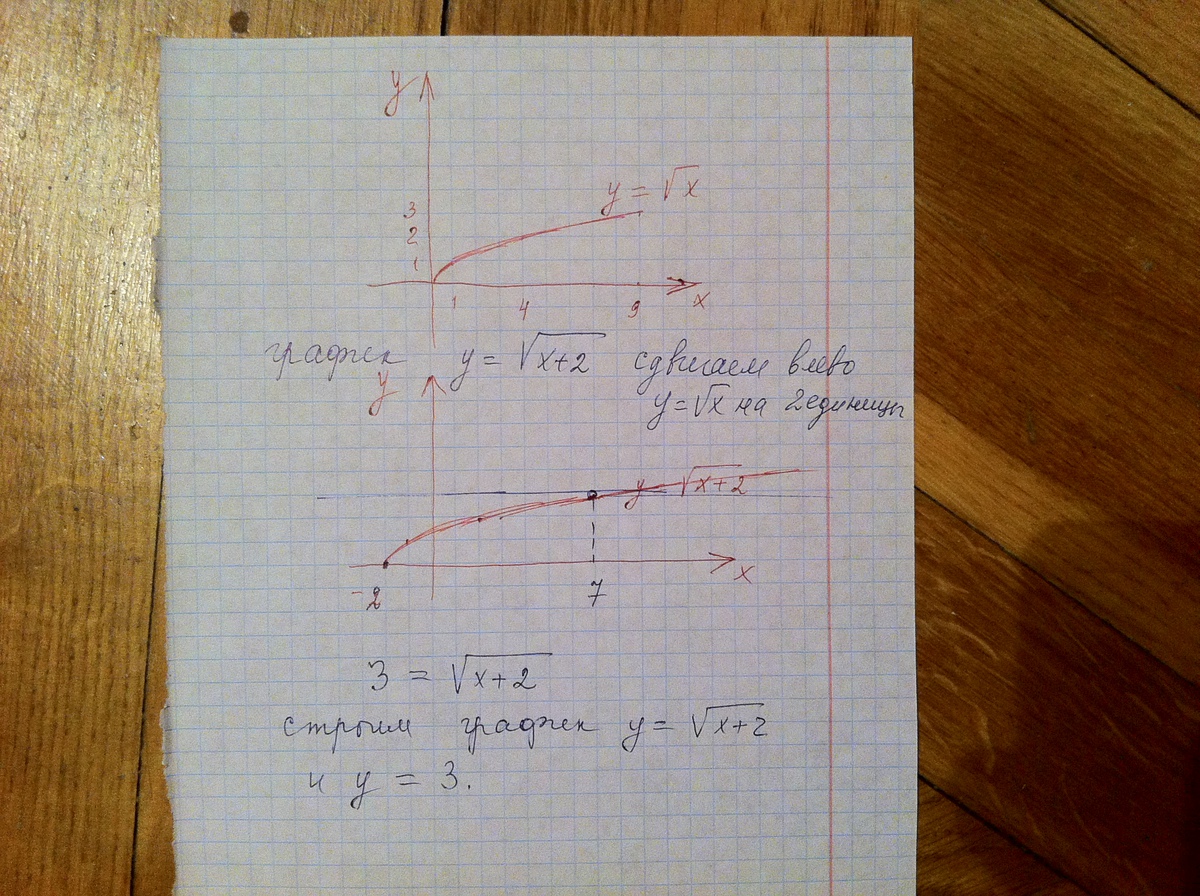 y
y = √x
3
2
1
1 4 9
x
график y = √x+2 сдвигаем влево
y = √x на 2 единицы
y
y √x+2
x
-2 7
3 = √x+2
строим график y = √x+2
и y = 3.